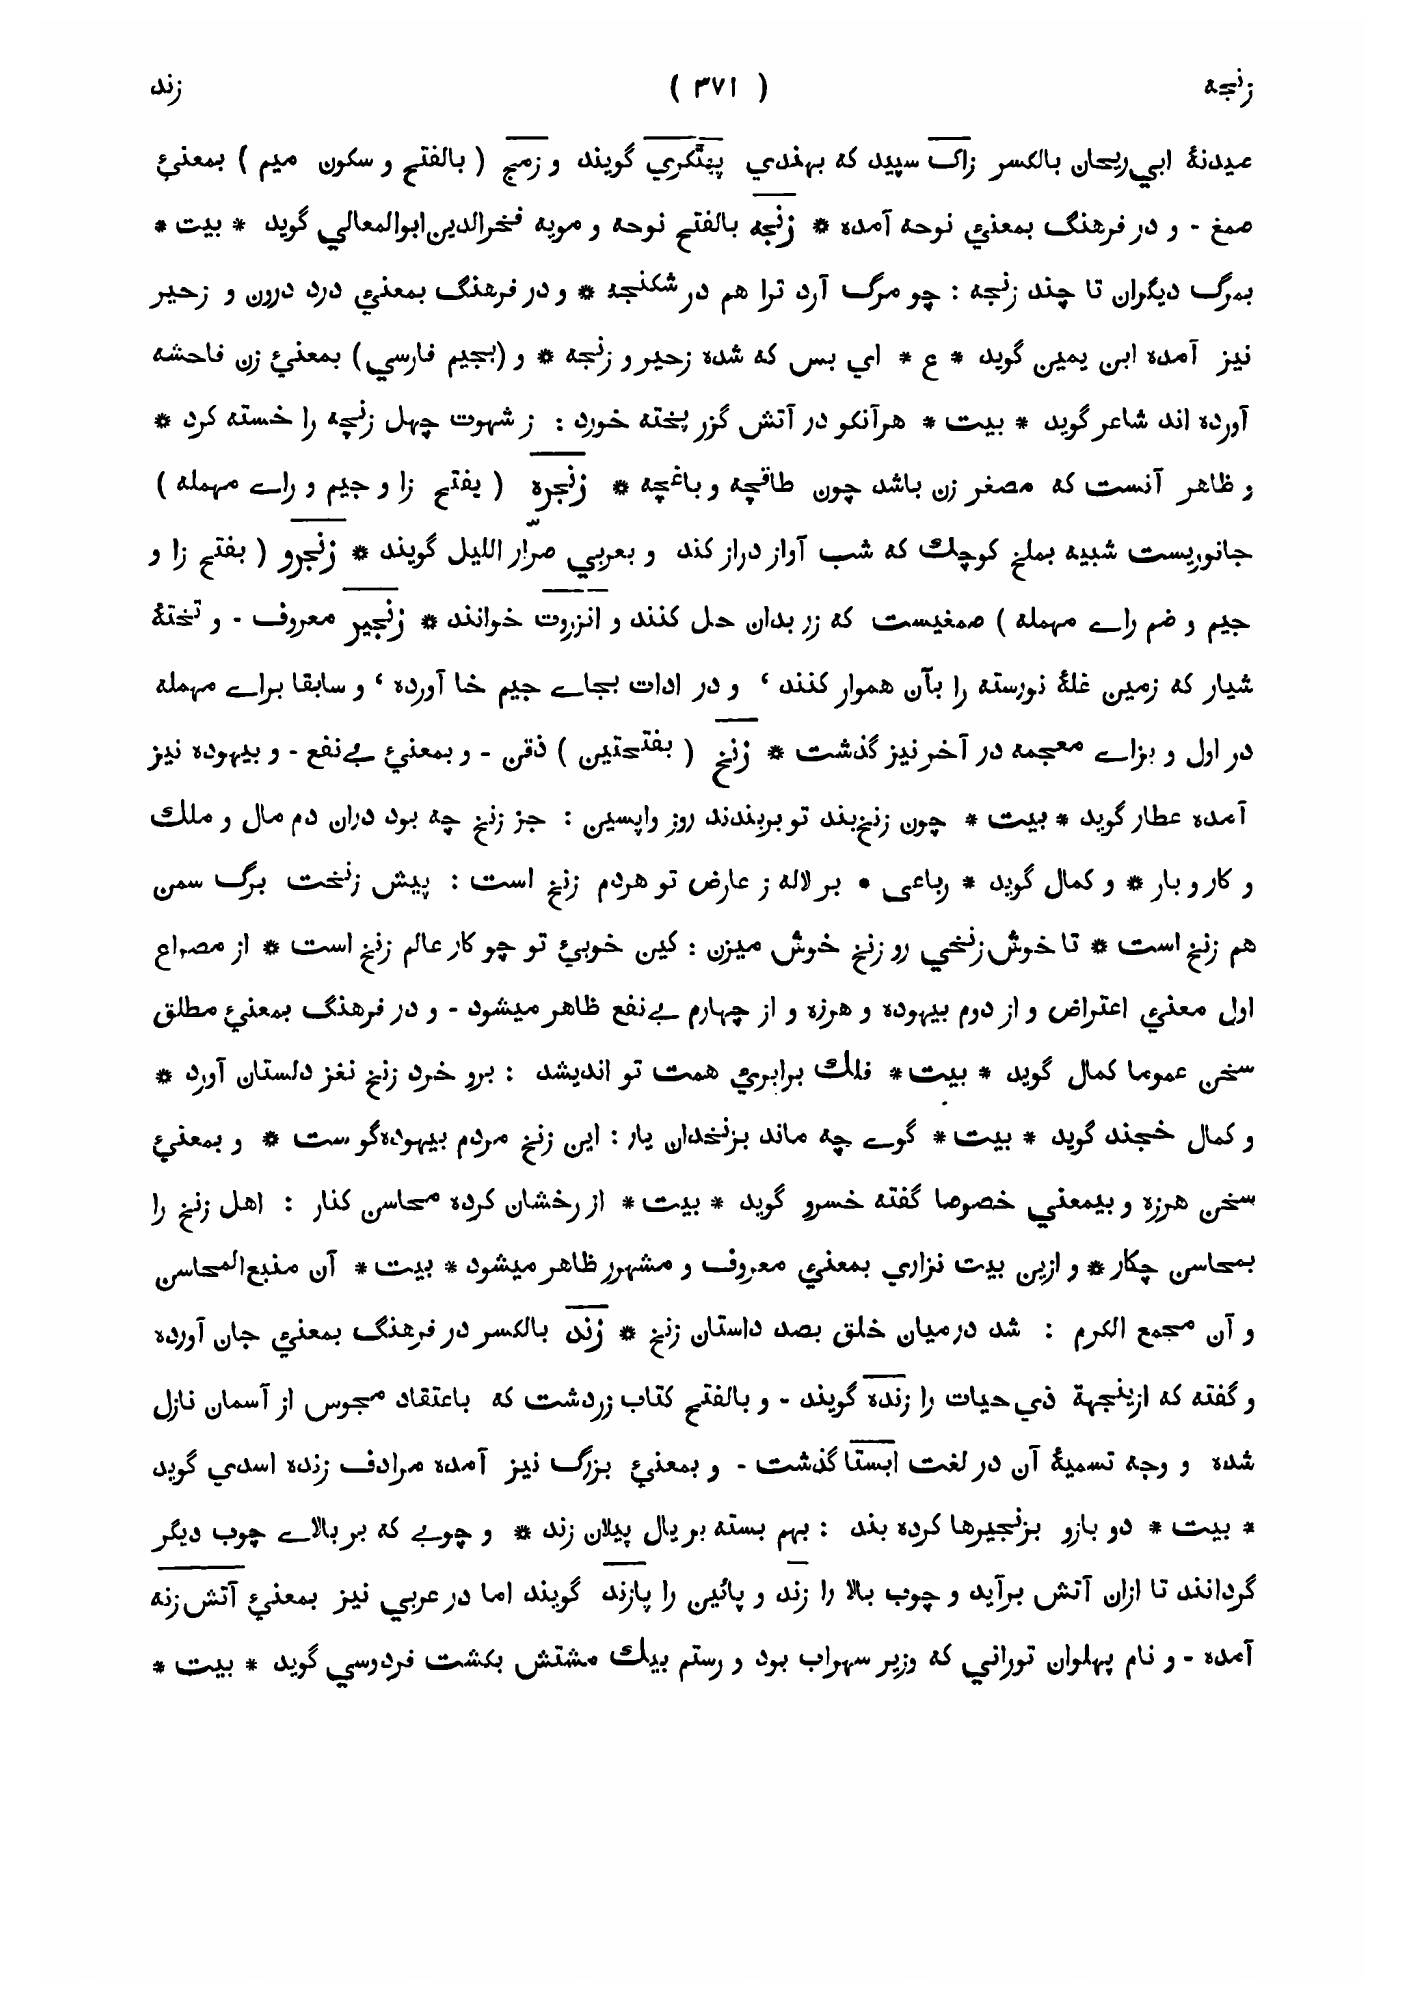 زنجه ( ۳۷۱ ) زند
عیدنهٔ ابي ریحان بالکسر زاک سپید که بهندي پهٹکري گویند و زمج ( بالفتح و سکون میم ) بمعنیٔ
صمغ - و در فرهنگ بمعنئ نوحه آمده * زنجه بالفتح نوحه و مویه فخرالدین ابوالمعالي گوید * بیت *
بمرگ دیگران تا چند زنجه : چو مرگ آرد ترا هم در شکنجه * و در فرهنگ بمعنئ درد درون و زحیر
نیز آمده ابن یمین گوید * ع * اي بس که شده زحیر و زنجه * و (بجیم فارسي) بمعنئ زن فاحشه
آورده اند شاعر گوید * بیت * هرآنکو در آتش گزر پخته خورد : ز شهوت چهل زنچه را خسته کرد *
و ظاهر آنست که مصغر زن باشد چون طاقچه و باغچه * زنجره ( بفتح زا و جیم و راے مهمله )
جانوریست شبیه بملخ کوچك که شب آواز دراز کند و بعربي صرّار اللیل گویند * زنجرو ( بفتح زا و
جیم و ضم راے مهمله ) صمغیست که زر بدان حل کنند و انزروت خوانند * زنجیر معروف - و تختهٔ
شیار که زمین غلهٔ نورسته را بآن هموار کنند ، و در ادات بجاے جیم خا آورده ، و سابقا براے مهمله
در اول و بزاے معجمه در آخر نیز گذشت * زنخ ( بفتحتین ) ذقن - و بمعنئ بےنفع - و بیهوده نیز
آمده عطار گوید * بیت * چون زنخ‌بند تو بربندند روز واپسین : جز زنخ چه بود دران دم مال و ملك
و کار و بار * و کمال گوید * رباعی * بر لاله ز عارض تو هردم زنخ است : پیش زنخت برگ سمن
هم زنخ است * تا خوش زنخي رو زنخ خوش میزن : کین خوبئ تو چو کار عالم زنخ است * از مصراع
اول معني اعتراض و از دوم بیهوده و هرزه و از چهارم بےنفع ظاهر میشود - و در فرهنگ بمعنئ مطلق
سخن عموما کمال گوید * بیت * فلك برابرئ همت تو اندیشد : برو خرد زنخ نغز دلستان آورد *
و کمال خجند گوید * بیت * گوے چه ماند بزنخدان یار : این زنخ مردم بیهوده‌گو ست * و بمعنئ
سخن هرزه و بیمعني خصوصا گفته خسرو گوید * بیت * از رخشان کرده محاسن کنار : اهل زنخ را
بمحاسن چکار * و ازین بیت نزاري بمعنئ معروف و مشهور ظاهر میشود * بیت * آن منبع المحاسن
و آن مجمع الکرم : شد درمیان خلق بصد داستان زنخ * زند بالکسر در فرهنگ بمعنئ جان آورده
و گفته که ازینجهة ذي حیات را زنده گویند - و بالفتح کتاب زردشت که باعتقاد مجوس از آسمان نازل
شده و وجه تسمیهٔ آن در لغت ابستا گذشت - و بمعنئ بزرگ نیز آمده مرادف زنده اسدي گوید
* بیت * دو بازو بزنجیرها کرده بند : بهم بسته بر یال پیلان زند * و چوبے که بر بالاے چوب دیگر
گردانند تا ازان آتش برآید و چوب بالا را زند و پائین را پازند گویند اما در عربي نیز بمعنئ آتش زنه
آمده - و نام پهلوان توراني که وزیر سهراب بود و رستم بیك مشتش بکشت فردوسي گوید * بیت *